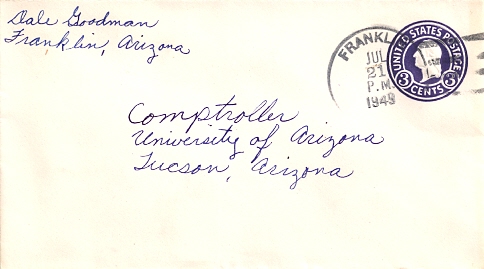 Dale Goodman
Franklin, Arizona
FRANKLI
JUL
21
P.M.
1949
UNITED STATES POSTAGE
3 CENTS 3
Comptroller
University of Arizona
Tucson, Arizona